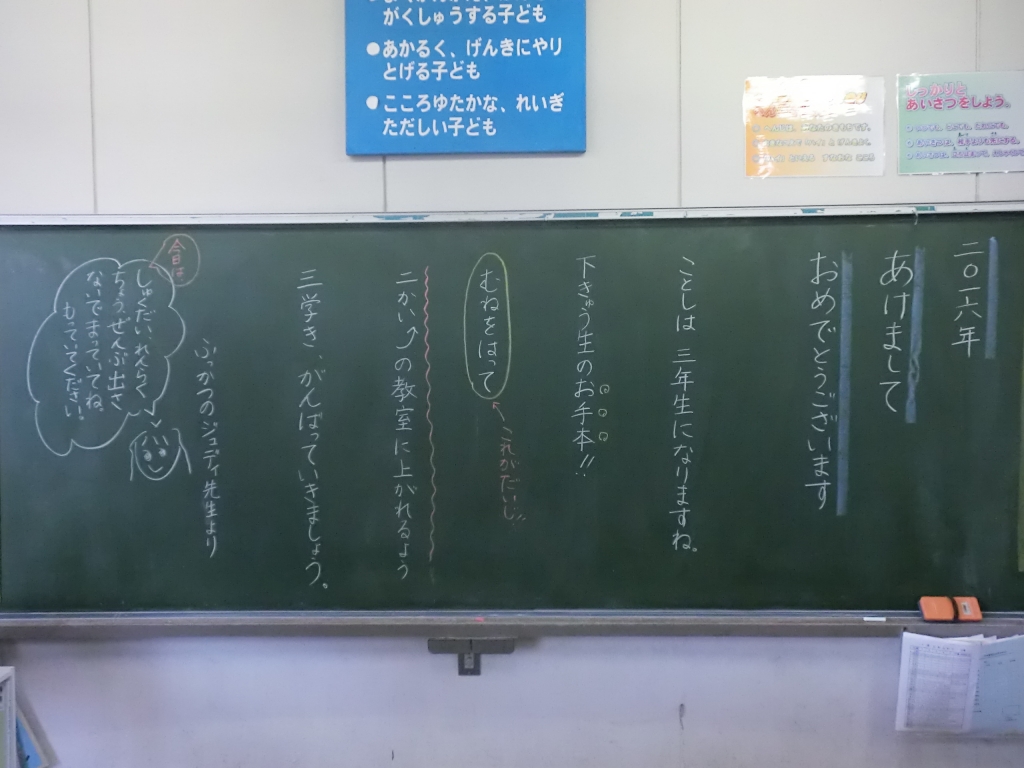 がくしゅうする子ども
●あかるく、げんきにやり
とげる子ども
●こころゆたかな、れいぎ
ただしい子ども
あいさつをしよう。
二〇一六年
あけまして
おめでとうございます
ことしは 三年生になりますね。
下きゅう生のお手本!!
むねをはって
これがだいじ!!
二かい⤴の教室に上がれるよう
三学き、がんばっていきましょう。
ぶっかつのジュディ先生より
今日は
しゅくだい、れんらく
ちょう、ぜんぶ出さ
ないでまっていてね。
もっていてください。